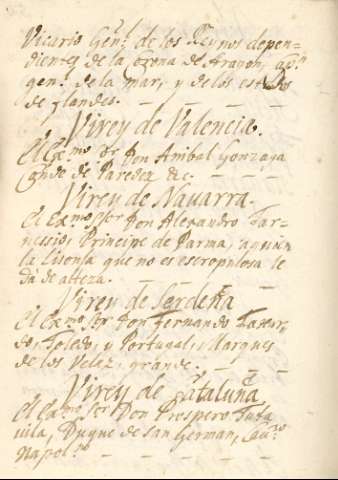 Vicario Genl. de los Reynos depen-
dientes de la corona de Aragon, capn.
genl. de la mar, y de los estados
de flandes.
Virey de Valencia.
El Exmo. Sr. Don Anibal Gonzaga
Conde de Paredez &c.
Virey de Navarra.
El Exmo. Sr. Don Alexandro Far-
nessio, Principe de Parma, a quien
la lisonja que no es escropulosa le
dà de alteza.
Virey de Serdeña
El Exmo. Sr. Don Fernando Faxar-
do, Toledo, y Portugal, Marques
de los Velez, grande.
Virey de Cataluña
El Exmo. Ser. Don Prospero Tuta
vila, Duque de San German, Cauo.
Napolno.